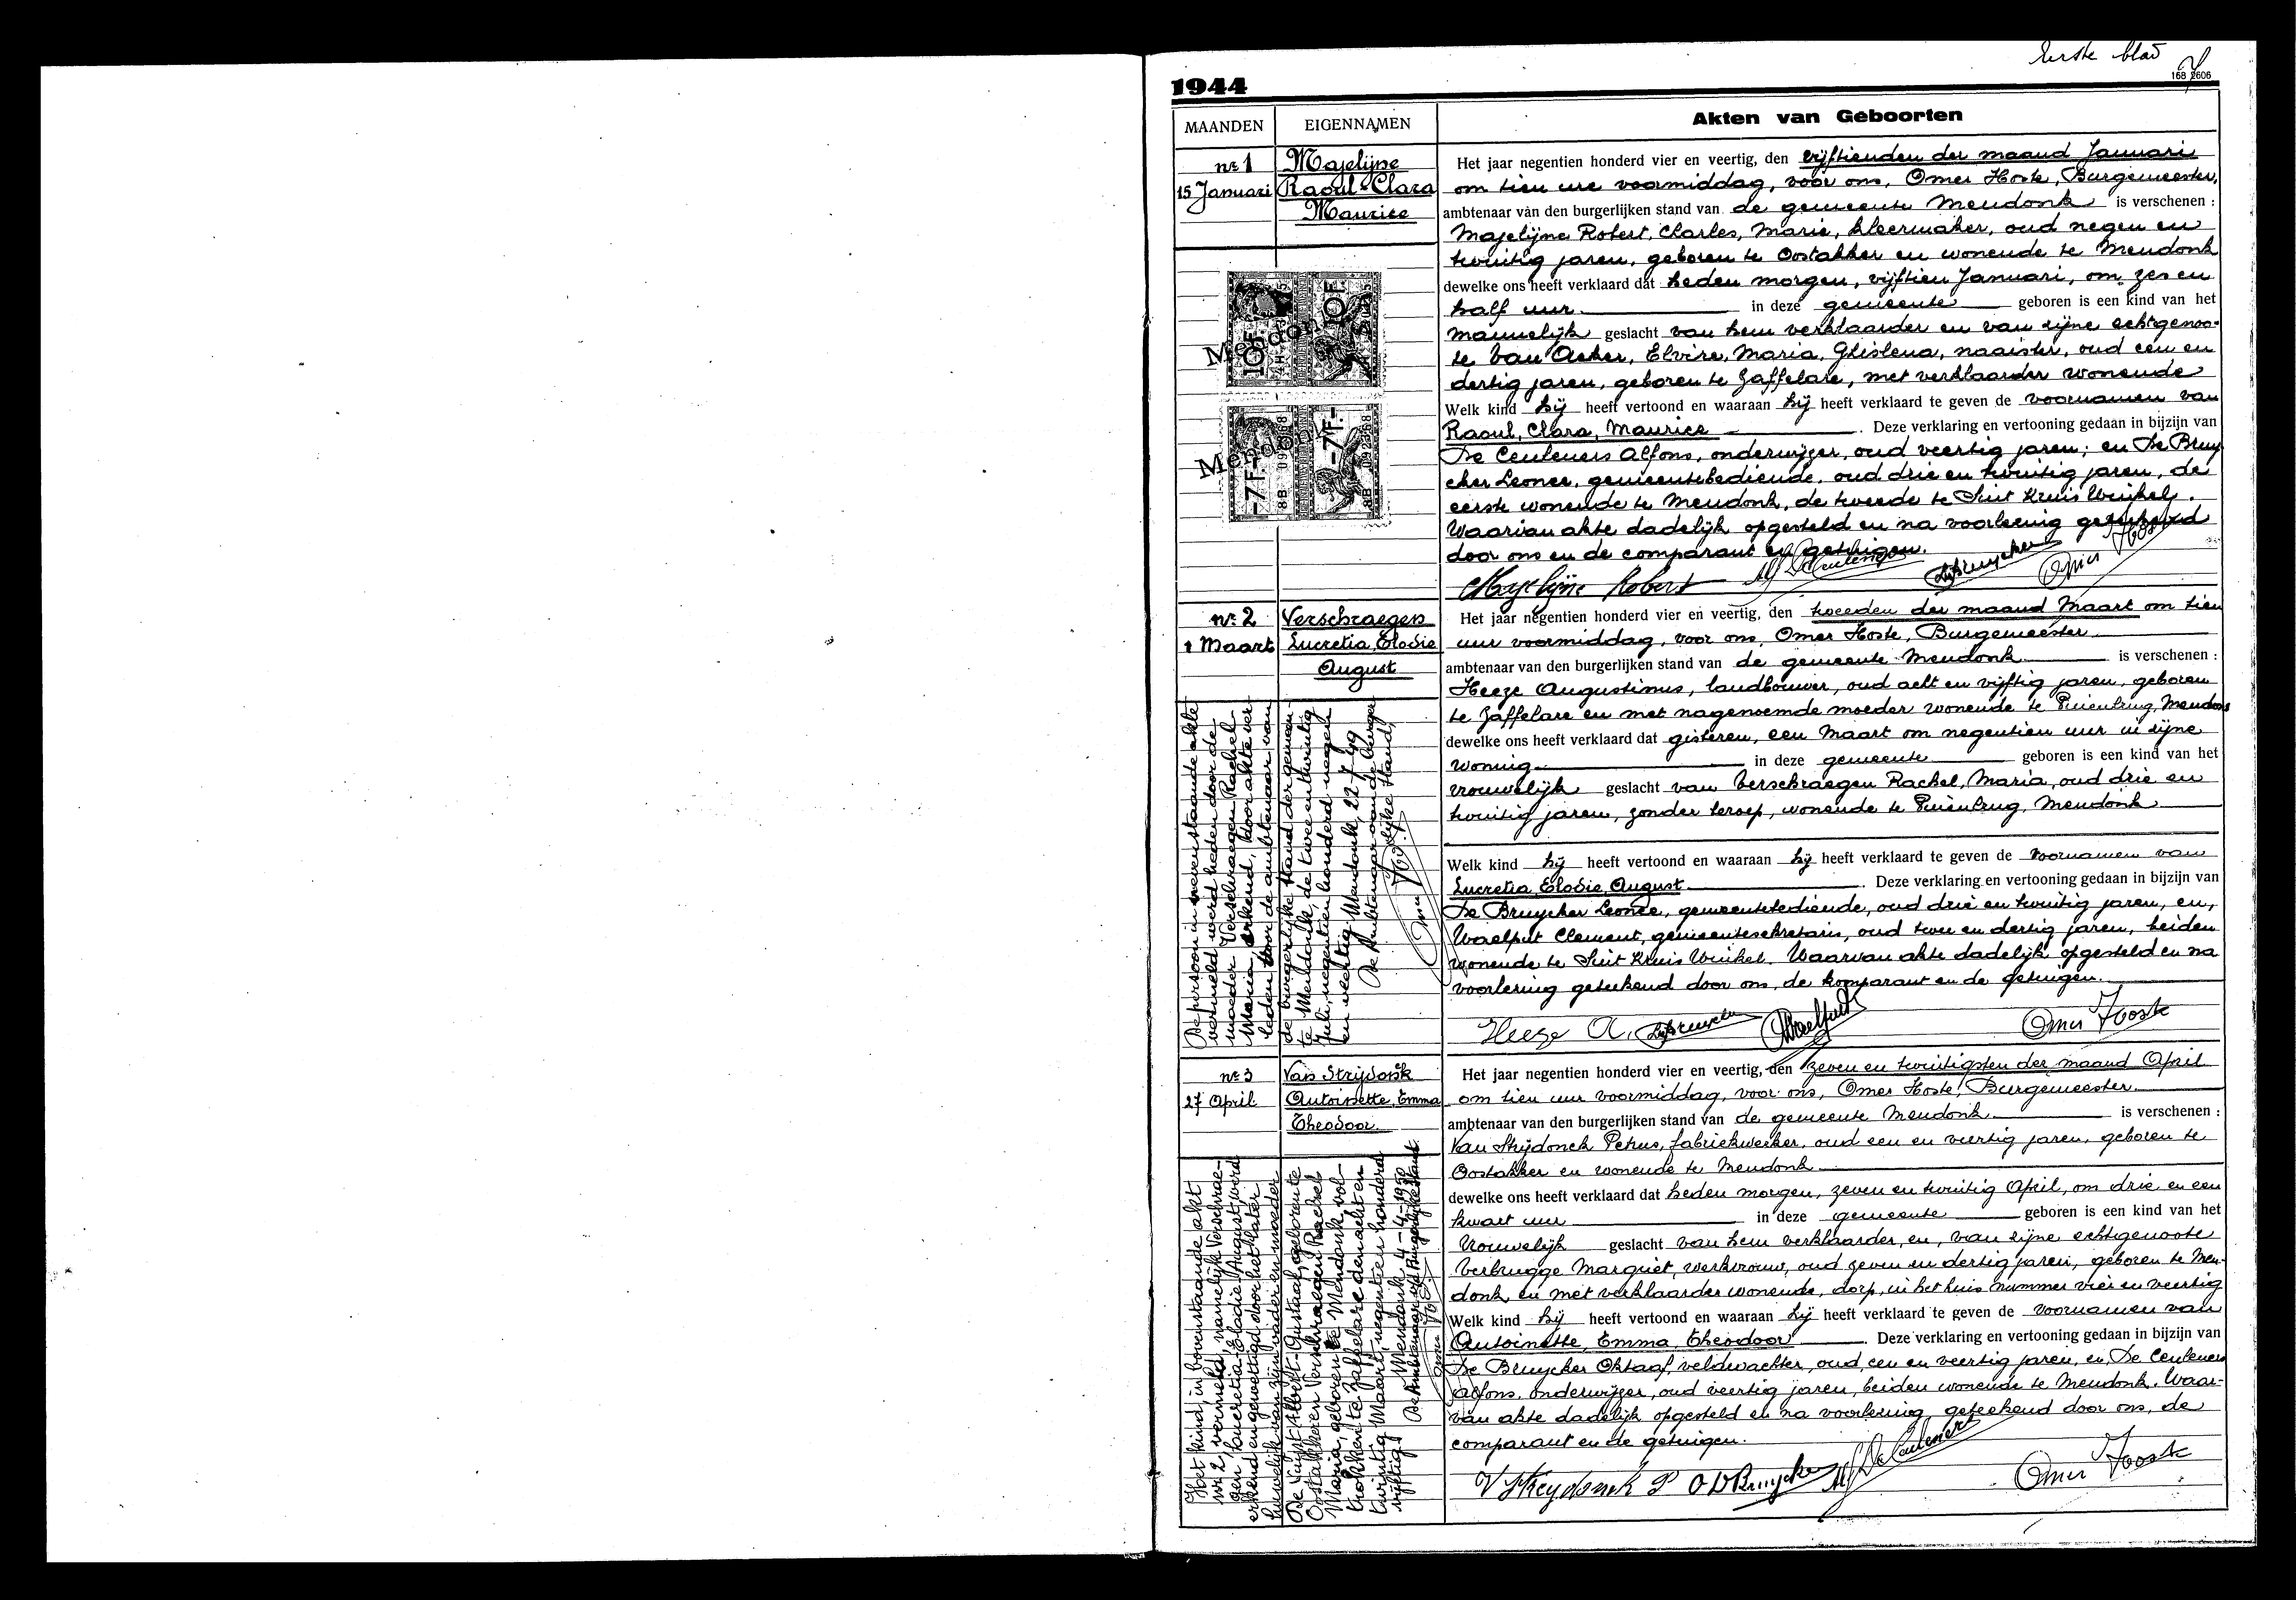 Eerste blad
168 2606
1944
MAANDEN
EIGENNAMEN
Akten van Geboorten
nr 1
15 Januari
Majelijne
Raoul-Clara
Maurice
Het jaar negentien honderd vier en veertig, den vijftienden der maand Januari
om tien ure voormiddag, voor ons, Omer Hoste, Burgemeester,
ambtenaar van den burgerlijken stand van de gemeente Mendonk is verschenen :
Majelijne Robert, Charles, Marie, kleermaker, oud negen en
twintig jaren, geboren te Oostakker en wonende te Mendonk
dewelke ons heeft verklaard dat heden morgen, vijftien Januari, om zes en
half uur in deze gemeente geboren is een kind van het
mannelijk geslacht van hem verklaarder en van zijne echtgenoo-
te Van Acker, Elvire, Maria, Ghislena, naaister, oud een en
dertig jaren, geboren te Zaffelare, met verklaarder wonende
Welk kind hij heeft vertoond en waaraan hij heeft verklaard te geven de voornamen van
Raoul, Clara, Maurice . Deze verklaring en vertooning gedaan in bijzijn van
De Ceuleners Alfons, onderwijzer, oud veertig jaren; en De Bruy
cker Leonce, gemeentebediende, oud drie en twintig jaren, de
eerste wonende te Mendonk, de tweede te Sint Kruis Winkel.
Waarvan akte dadelijk opgesteld en na voorlezing geteekend
door ons en de comparant en getuigen.
Majelijne Robert
Omer Hoste
Mendonk
10F.
10F.
Mendonk
-7F.-
-7F.-
8B 092368
8B 092368
nr. 2
1 Maart
Verschraegen
Lucretia, Elodie
August
Het jaar negentien honderd vier en veertig, den tweeden der maand Maart om tien
uur voormiddag, voor ons, Omer Hoste, Burgemeester
ambtenaar van den burgerlijken stand van de gemeente Mendonk is verschenen :
Heeze Augustinus, landbouwer, oud acht en vijftig jaren, geboren
te Zaffelare en met nagenoemde moeder wonende te Puienbrug, Mendonk
dewelke ons heeft verklaard dat gisteren, een Maart om negentien uur in zijne
woning in deze gemeente geboren is een kind van het
vrouwelijk geslacht van Verschraegen Rachel, Maria, oud drie en
twintig jaren, zonder beroep, wonende te Puienbrug, Mendonk
Welk kind hij heeft vertoond en waaraan hij heeft verklaard te geven de voornamen van
Lucretia, Elodie, August . Deze verklaring en vertooning gedaan in bijzijn van
De Bruycker Leonce, gemeentebediende, oud drie en twintig jaren, en,
Waelput Clement, gemeentesekretaris, oud twee en dertig jaren, beiden
wonende te Sint Kruis Winkel. Waarvan akte dadelijk opgesteld en na
voorlezing geteekend door ons, de komparant en de getuigen.
Heeze A.
Omer Hoste
De persoon in nevenstaande akte
vermeld werd heden door de
moeder Verschraegen Rachel
Maria, erkend, door akte ver-
leden voor de ambtenaar van
de burgerlijke stand der gemeen-
te Mendonk, de twee en twintig
Juli, negentien honderd negen
en veertig. Mendonk, 22-7-49
De Ambtenaar van de burger
lijke stand,
nr. 3
27 April
Van Strijdonck
Antoinette, Emma
Theodoor
Het jaar negentien honderd vier en veertig, den zeven en twintigsten der maand April
om tien uur voormiddag, voor ons, Omer Hoste, Burgemeester
ambtenaar van den burgerlijken stand van de gemeente Mendonk is verschenen :
Van Strijdonck Petrus, fabriekwerker, oud een en veertig jaren, geboren te
Oostakker en wonende te Mendonk
dewelke ons heeft verklaard dat heden morgen, zeven en twintig April, om drie en een
kwart uur in deze gemeente geboren is een kind van het
vrouwelijk geslacht van hem verklaarder, en, van zijne echtgenoote
Verbrugge Margriet, werkvrouw, oud zeven en dertig jaren, geboren te Men-
donk, en met verklaarder wonende, dorp, in het huis nummer vier en veertig
Welk kind hij heeft vertoond en waaraan hij heeft verklaard te geven de voornamen van
Antoinette, Emma, Theodoor . Deze verklaring en vertooning gedaan in bijzijn van
De Bruycker Oktaaf, veldwachter, oud, een en veertig jaren, en, De Ceuleners
Alfons, onderwijzer, oud veertig jaren, beiden wonende te Mendonk. Waar-
van akte dadelijk opgesteld en na voorlezing geteekend door ons, de
comparant en de getuigen.
V Streydonck P
O D Bruycker
Alf De Ceuleners
Omer Hoste
Het kind, in bovenstaande akt
nr 2, vermeld, namelijk Verschrae-
gen, Lucretia-Elodie-August, werd
erkend en gewettigd door het later
huwelijk van zijn vader en moeder
De Vuyst Albert-Gustaaf, geboren te
Oostakker en Verschraegen Rachel
Maria, geboren te Mendonk, vol-
trokken te Zaffelare den acht en
twintig Maart, negentien honderd
vijftig. Mendonk 4-4-1950
De Ambtenaar v/d Burgerlijke Stand